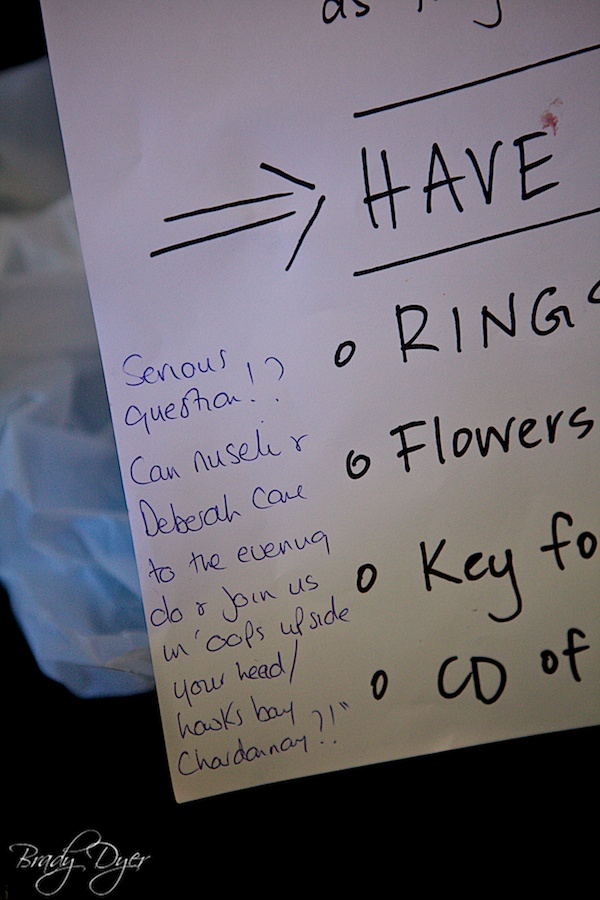 as
HAVE
Serious
question!?
o RINGS
Can nuseli &
Deborah come
o Flowers
to the evening
do & join us
in 'oops upside
your head/
hawks bay
Chardonnay?!"
o Key fo
o CD of
Brady Dyer